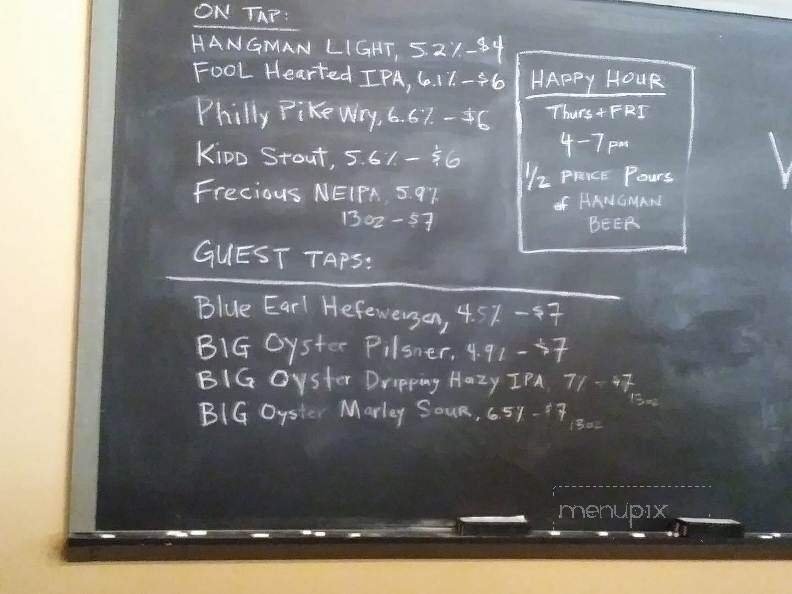 ON TAP:
HANGMAN LIGHT, 5.2% - $4
FOOL Hearted IPA, 6.1% - $6
Philly Pike Wry, 6.6% - $6
KIDD Stout, 5.6% - $6
Frecious NEIPA, 5.9%
13oz - $7
GUEST TAPS:
Blue Earl Hefeweizen, 4.5% - $7
BIG Oyster Pilsner, 4.9% - $7
BIG Oyster Dripping Hazy IPA 7% - $7
13oz
BIG Oyster Marley Sour, 6.5% - $7
13oz
HAPPY HOUR
Thurs + FRI
4-7pm
1/2 PRICE Pours
of HANGMAN
BEER
menupix